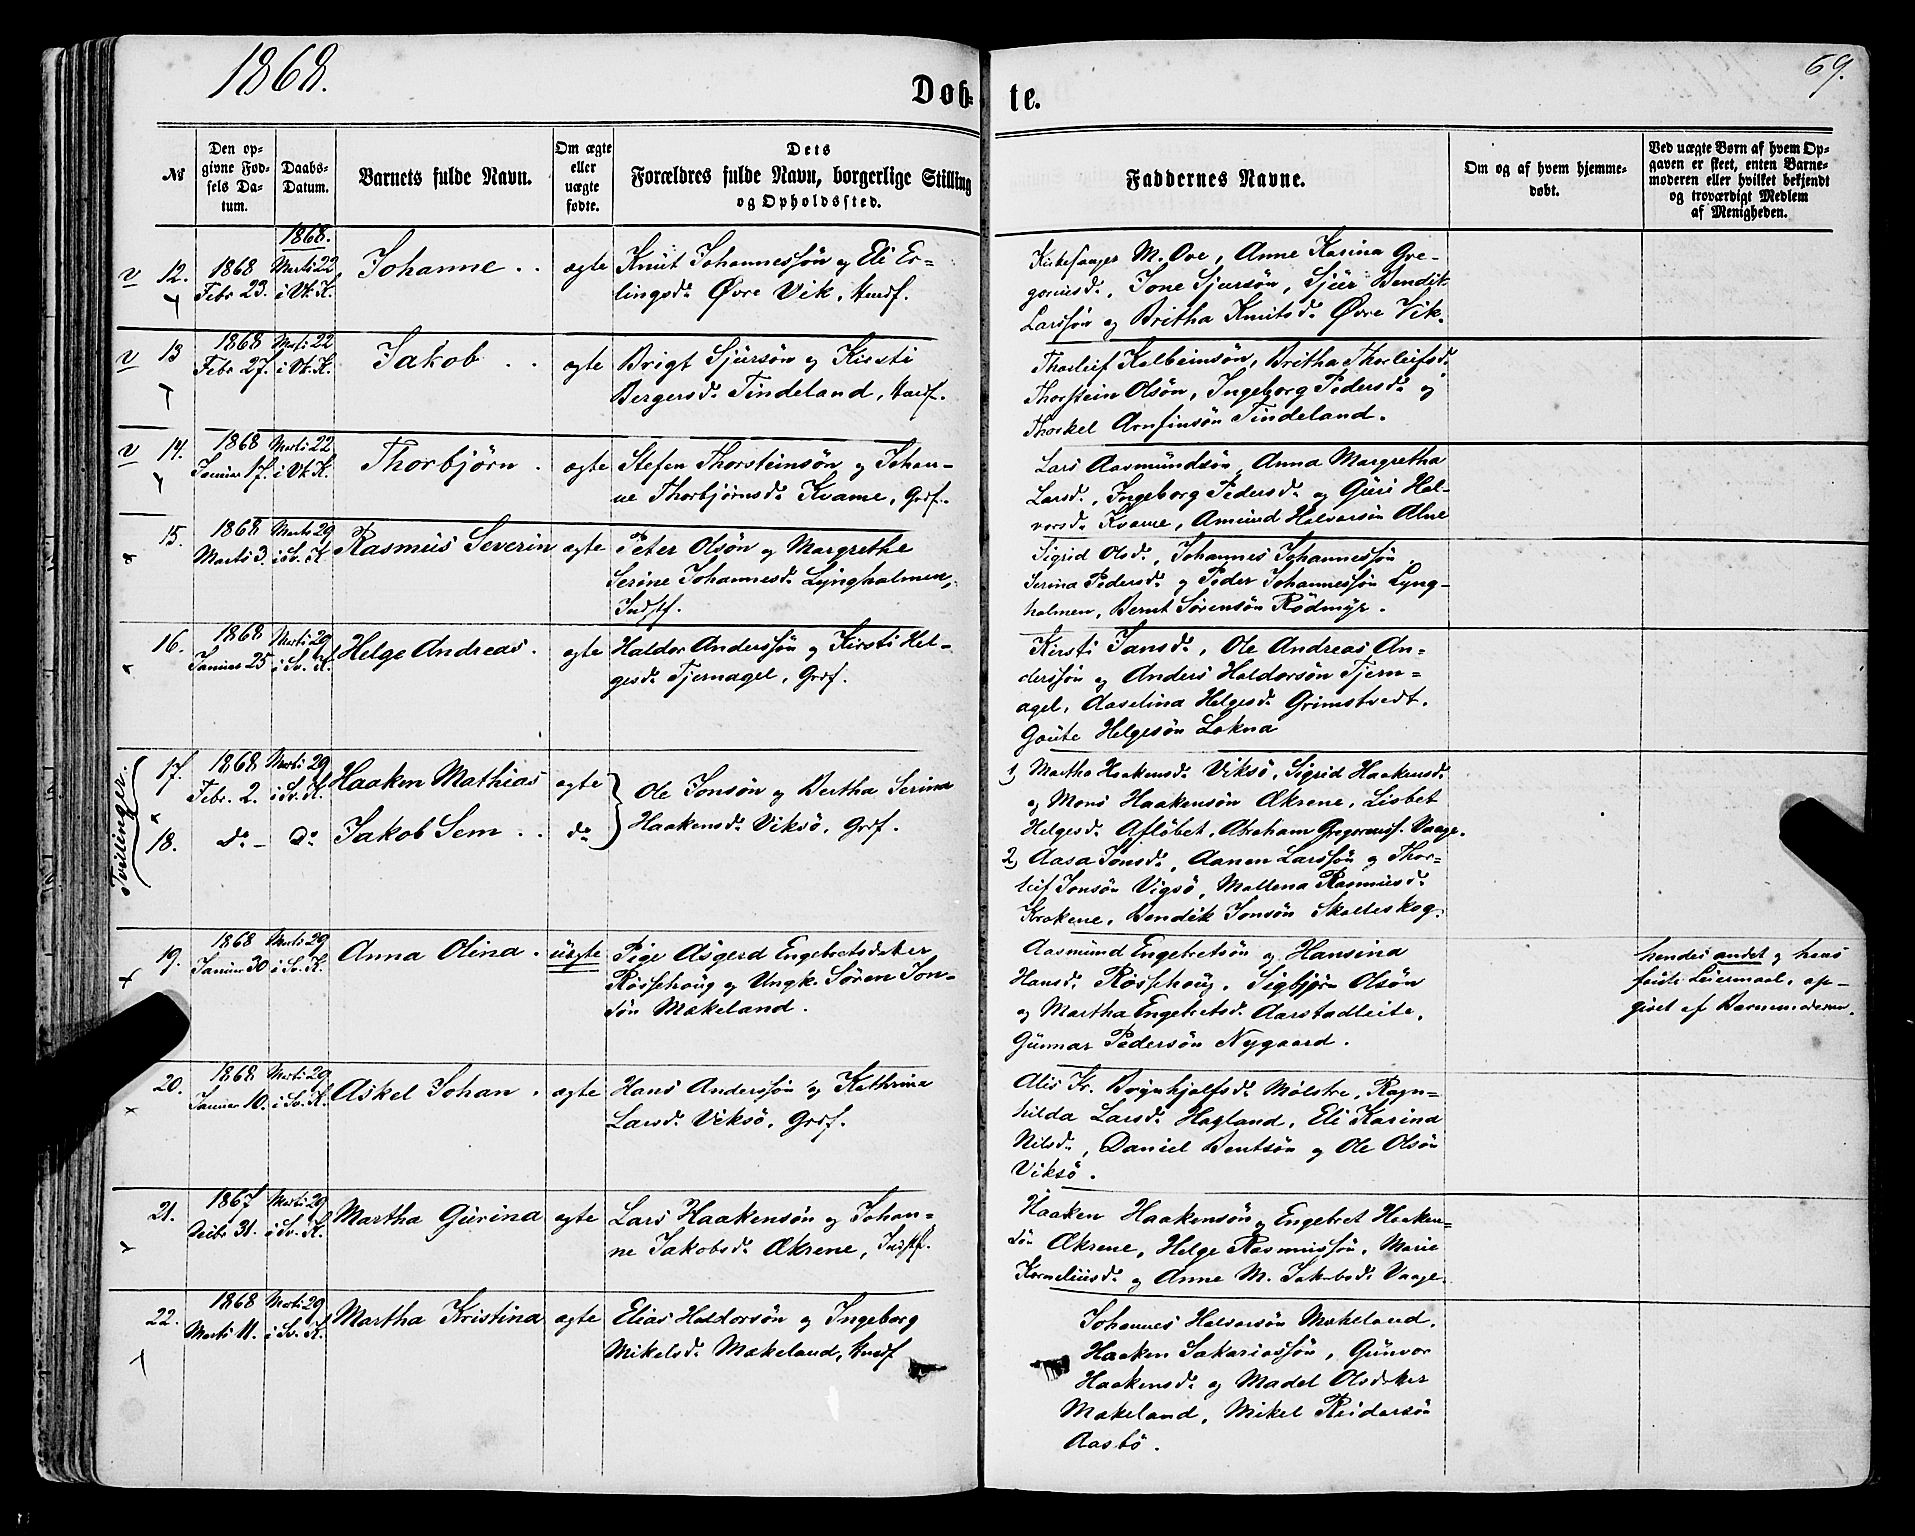 1868.
69.
Døb-te.
№
Den op-
givne Fød-
sels Da-
tum.
Daabs-
Datum.
Barnets fulde Navn.
Om ægte
eller
uægte
fødte.
Dets
Forældres fulde Navn, borgerlige Stilling
og Opholdssted.
Faddernes Navne.
Om og af hvem hjemme-
døbt.
Ved uægte Børn af hvem Op-
gaven er skeet, enten Barne-
moderen eller hvilket bekjendt
og troværdigt Medlem
af Menigheden.
1868.
v 12. 1868 Marti 22 Johanne . . ægte Knut Johannessøn og Eli Er-
Febr 23. i Vk. K. lingsd. Øvre Vik, Husf.
Kirkesanger M. Ove, Anne Karina Gre-
goriusd., Jone Sjursøn, Sjur Bendik
Larssøn og Britha Knutsd. Øvre Vik.
v 13 1868 Marti 22 Jakob . . ægte Brigt Sjursøn og Kirsti
Febr 27. i Vk. K. Bergersd. Tindeland, Husf.
Thorleif Kolbeinsøn, Britha Thorleifsd.
Thorstein Olsøn, Ingeborg Pedersd. og
Thorkel Arnfinsøn Tindeland.
v 14. 1868 Marti 22 Thorbjørn . ægte Stefen Thorsteinsøn og Johan-
Januar 17. i Vk. K. ne Thorbjørnsd. Kvame, Grdf.
Lars Aasmundsøn, Anna Margretha
Larsd., Ingeborg Pedersd. og Guri Hal-
vorsd. Kvame, Amund Halvorsøn Alne
15. 1868 Marti 29 Rasmus Severin ægte Peter Olsøn og Margrethe
Marti 3. i Sv. K. Serine Johannesd. Lyngholmen,
Indstf.
Sigrid Olsd., Johannes Johannessøn
Serina Pedersd. og Peder Johannessøn Lyng-
holmen, Bernt Sørensøn Rødmyr.
16. 1868 Marti 29 Helge Andreas . ægte Haldor Anderssøn og Kirsti Hel-
Januar 25 i Sv. K. gesd. Tjernagel, Grdf.
Kirsti Jansd., Ole Andreas An-
derssøn og Anders Haldorsøn Tjern-
agel, Aaselina Helgesd. Grimstvedt.
Goute Helgesøn Lokna
Tvillinger.
17. 1868 Marti 29 Haaken Mathias ægte Ole Jonsøn og Bertha Serina
Febr. 2. i Sv. K. Haakensd. Viksø, Grdf.
18. do – Do Jakob Sem . . do
1, Martha Haakensd. Viksø, Sigrid Haakensd.
og Mons Haakensøn Økrene, Lisbet
Helgesd. Afløbet, Abraham Gregoriusf. Vaage.
2, Aasa Jonsd., Aanen Larssøn og Thor-
leif Jonsøn Vigsø, Mallena Rasmusd.
Krakene, Bendik Jonsøn Skolleskog.
19. 1868 Marti 29 Anna Olina . uægte Pige Asgerd Engebretsdatter
Januar 30 i Sv. K. Røssehoug og Ungk. Søren Jon-
søn Mækeland.
Aasmund Engebretsøn og Hansina
Hansd. Røssehoug, Sigbjørn Olsøn
og Martha Engebretsd. Aarstadleite,
Gunnar Pedersøn Nygaard.
hendes andet og hans
første Leiermaal, op-
givet af Barnemoderen.
20. 1868 Marti 29 Askel Johan . ægte Hans Anderssøn og Kathrina
Januar 10. i Sv. K. Larsd. Viksø, Grdf.
Alis Kr. Brynhjolfsd. Mølstre, Ragn-
hilda Larsd. Hagland, Eli Karina
Nilsd., Daniel Bentsøn og Ole Olsøn
Viksø.
21. 1867 Marti 29 Martha Gurina ægte Lars Haakensøn og Johan-
Decbr 31. i Sv. K. ne Jakobsd. Økrene, Indstf.
Haaken Haakensøn og Engebret Haaken-
søn Økrene, Helge Rasmussøn, Marie
Korneliusd. og Anne M. Jakobsd. Vaage.
22. 1868 Marti 29 Martha Kristina ægte Elias Haldorsøn og Ingeborg
Marti 11. i Sv. K. Mikelsd. Mækeland, Husf
Johannes Halvorsøn Mækeland,
Haaken Sakariassøn, Gunvor
Haakensd. og Madel Olsdatter
Mækeland, Mikel Reidarsøn
Aasbø.